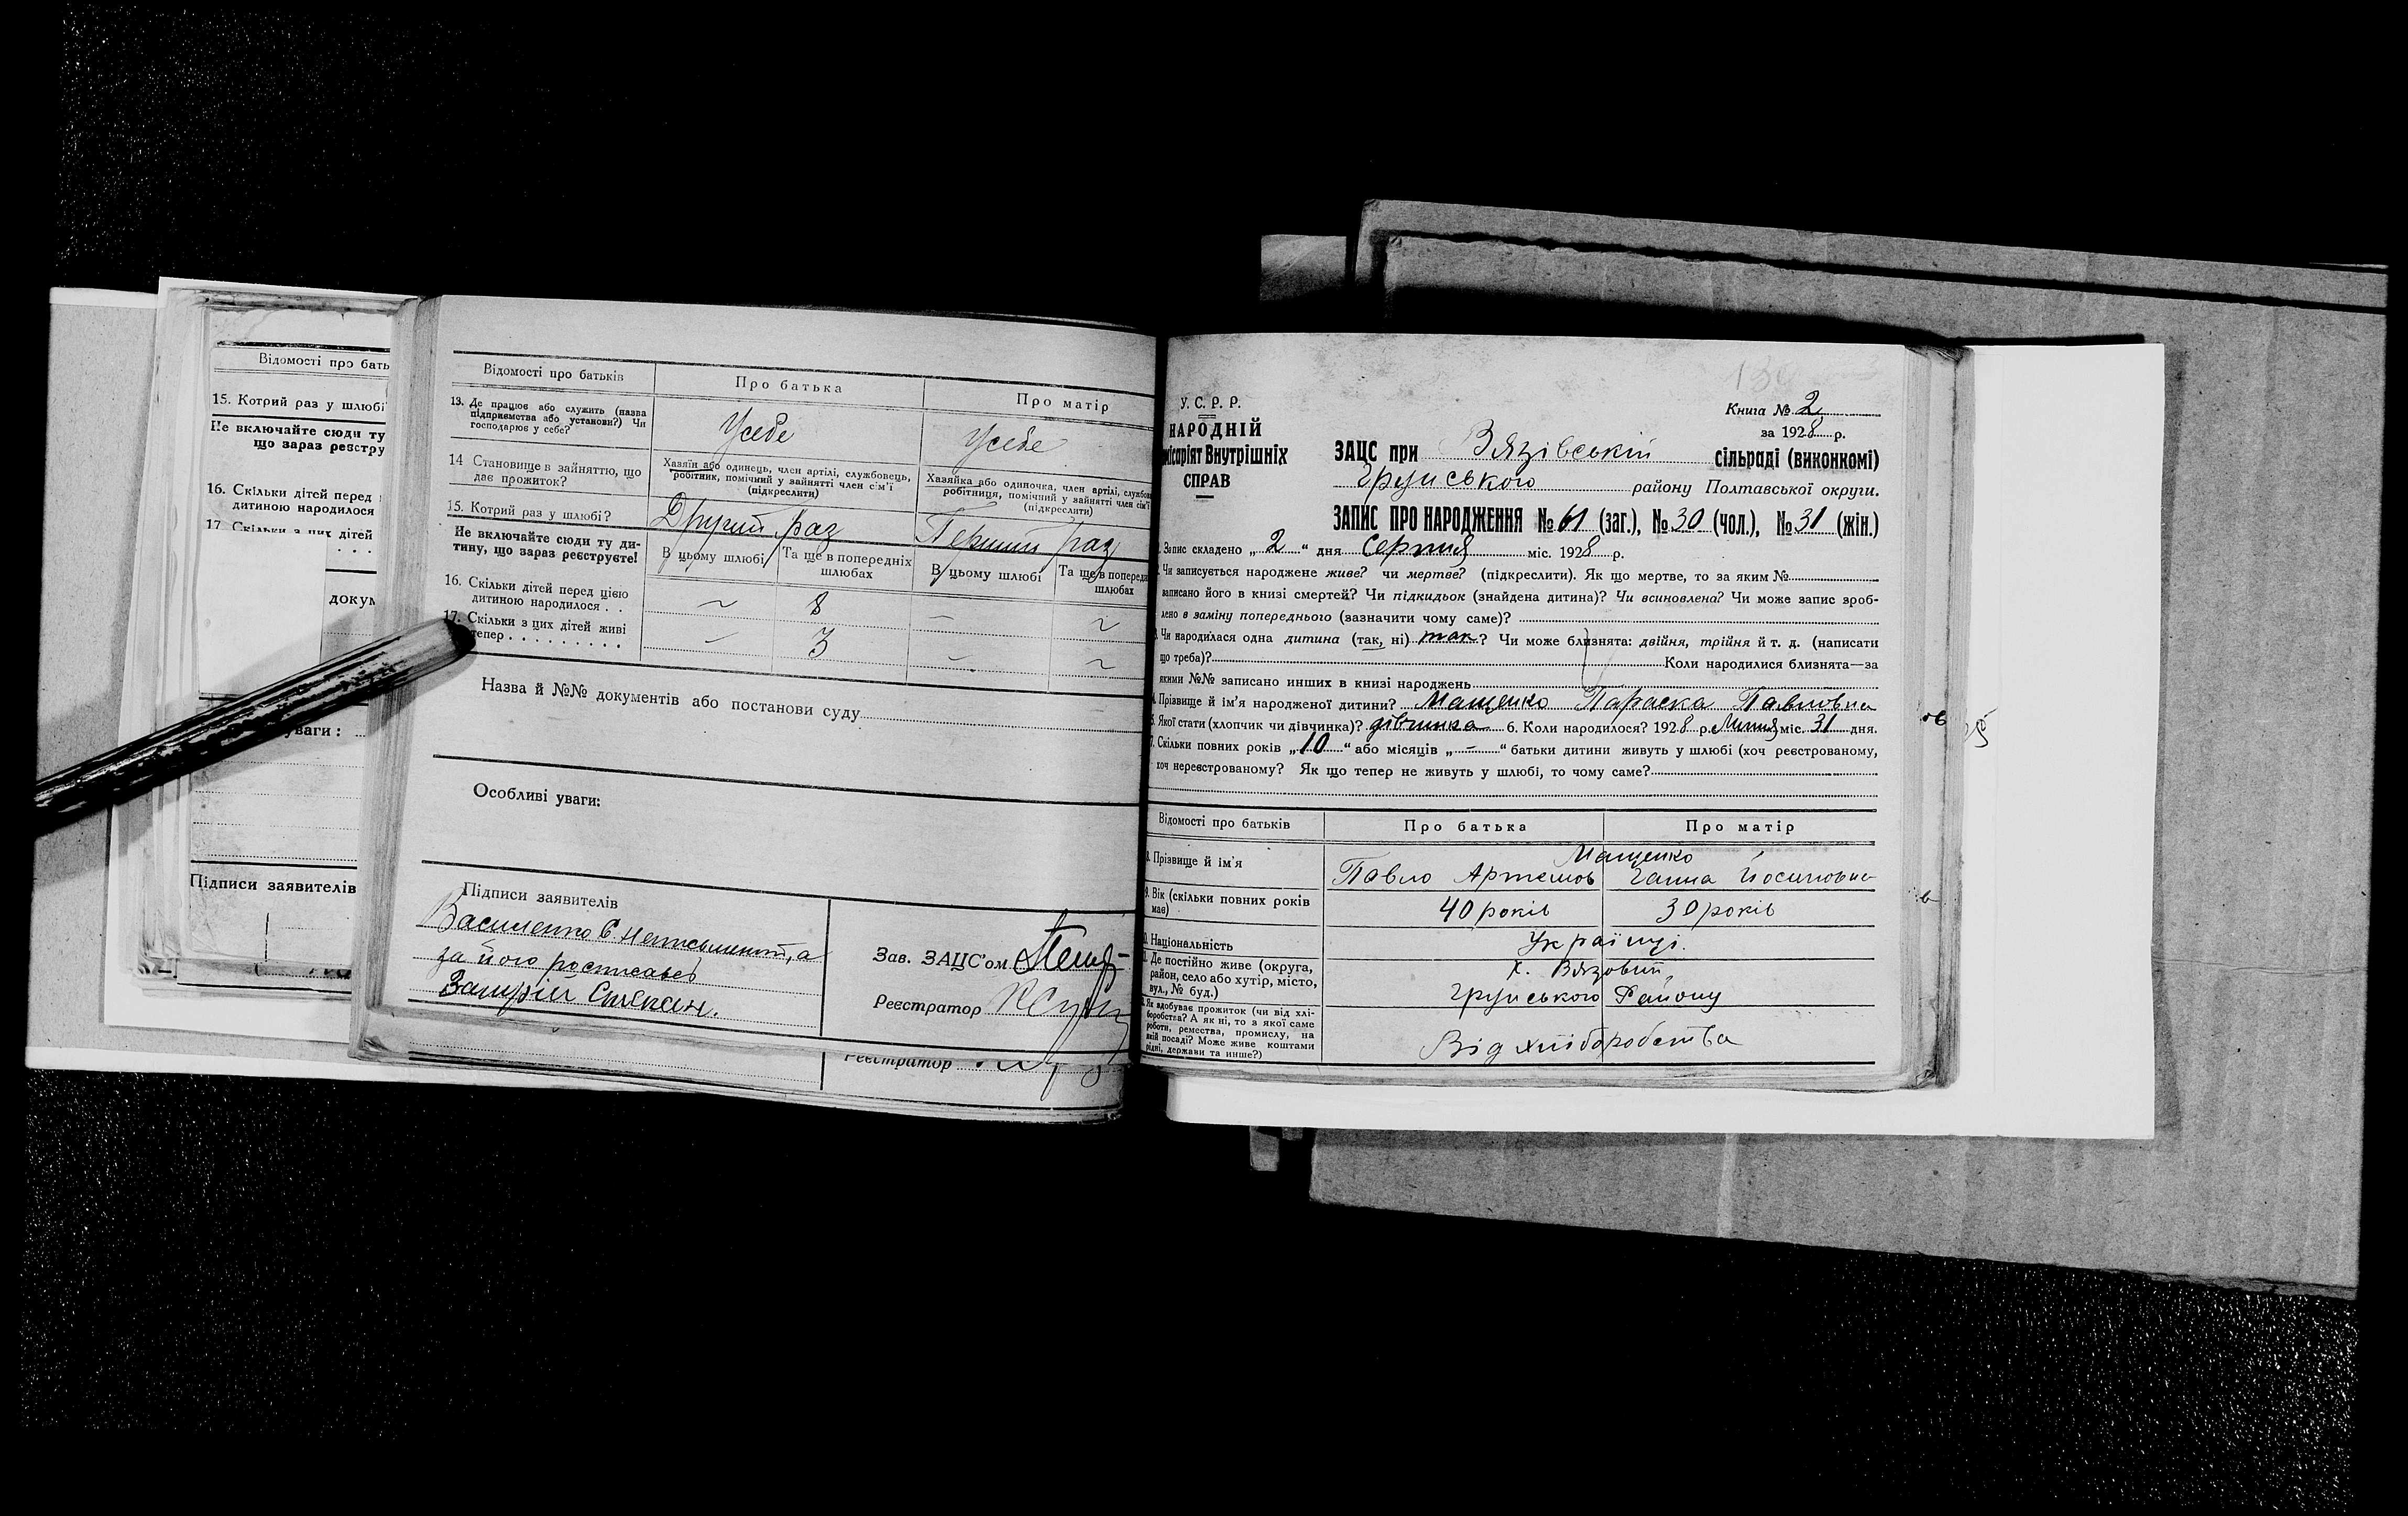 Відомості про бать
15. Котрий раз у шлюбі
Не включайте сюди ту
що зараз реєстру
16. Скільки дітей перед
дитиною народилося
17. Скільки з цих дітей
докум
уваги:
Підписи заявителів
Відомості про батьків Про батька Про матір
13. Де працює або служить (назва підприємства або установи?) Чи господарює у себе? Усебе Усебе
14 Становище в зайняттю, що дає прожиток? Хазяїн або одинець, член артілі, службовець, робітник, помічний у зайнятті член сім'ї (підкреслити) Хазяйка або одиночка, член артілі, службов робітниця, помічний у зайнятті член сім'ї (підкреслити)
15. Котрий раз у шлюбі? Другий раз Перший раз
Не включайте сюди ту дитину, що зараз реєструєте! В цьому шлюбі Та ще в попередніх шлюбах В цьому шлюбі Та ще в поперед шлюбах
16. Скільки дітей перед цією дитиною народилося . . ~ 8 — ~
17. Скільки з цих дітей живі тепер . . . . . . . . . — 3 — ~
Назва й №№ документів або постанови суду
Особливі уваги:
Підписи заявителів
Василенко С. неписьменний, а
за його росписавсь
Степан.
Зав. ЗАЦС'ом
Реєстратор
Реєстратор
У. С. Р. Р.
НАРОДНІЙ
місаріят Внутрішніх
СПРАВ
Книга № 2
за 1928 р.
ЗАЦС при Вязівській сільраді (виконкомі)
Грунського району Полтавської округи.
ЗАПИС ПРО НАРОДЖЕННЯ № 61 (заг.), № 30 (чол.), № 31 (жін.)
Запис складено „ 2 “ дня Серпня міс. 1928 р.
Чи записується народжене живе? чи мертве? (підкреслити). Як що мертве, то за яким №
записано його в книзі смертей? Чи підкидьок (знайдена дитина)? Чи всиновлена? Чи може запис зроб-
лено в заміну попереднього (зазначити чому саме)?
Чи народилася одна дитина (так, ні) так? Чи може близнята: двійня, трійня й т. д. (написати
що треба)? Коли народилися близнята—за
якими №№ записано инших в книзі народжень
Прізвище й ім'я народженої дитини? Мащенко Параска Павловна
5. Якої стати (хлопчик чи дівчинка)? дівчинка 6. Коли народилося? 1928 р. Липня міс. 31 дня.
Скільки повних років „ 10 “ або місяців „ — “ батьки дитини живуть у шлюбі (хоч реєстрованому,
хоч нереєстрованому? Як що тепер не живуть у шлюбі, то чому саме?
Відомості про батьків Про батька Про матір
Прізвище й ім'я Мащенко
Павло Артемов Ганна Йосиповна
9. Вік (скільки повних років має) 40 років 30 років
Національність Українці.
Де постійно живе (округа, район, село або хутір, місто, вул., № буд.) х. Вязовий,
Грунського Району
Як здобуває прожиток (чи від хліборобства? А як ні, то з якої саме роботи, ремества, промислу, на якій посаді? Може живе коштами рідні, держави та инше?) Від хліборобства